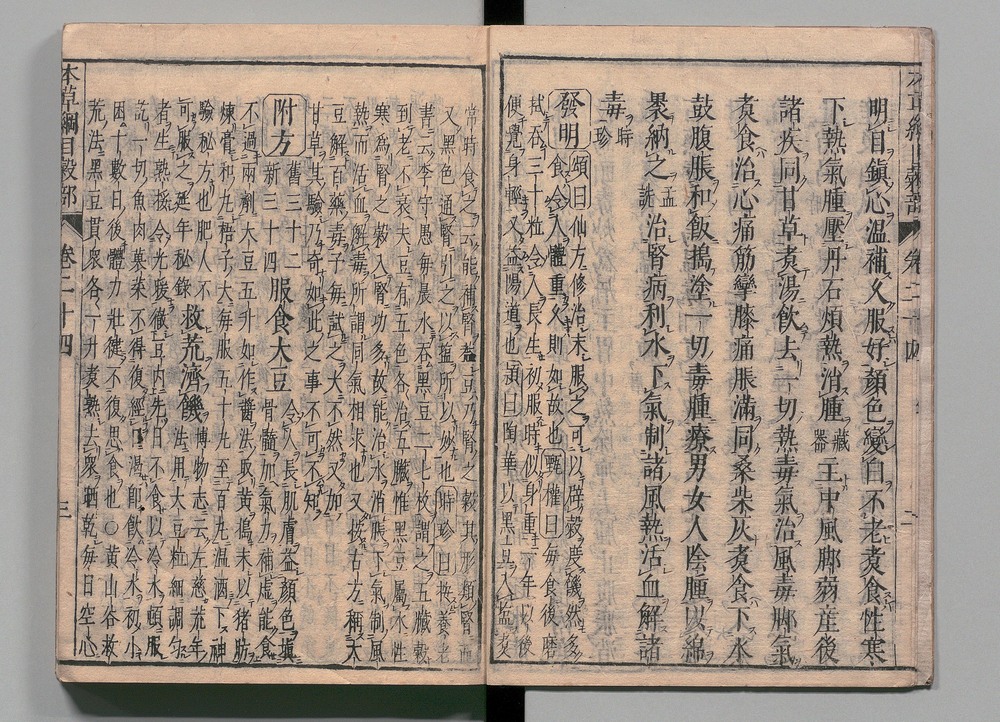 明目鎮心温補久服好顔色變白不老煮食性寒
下熱氣腫壓丹石煩熱消腫藏器主中風脚弱産後
諸疾同甘草煮湯飲去一切熱毒氣治風毒脚氣
煮食治心痛筋攣膝痛脹滿同桑柴灰煮食下水
鼓腹脹和飯搗塗一切毒腫療男女人陰腫以綿
裹納之孟詵治腎病利水下氣制諸風熱活血解諸
毒時珍
發明頌曰仙方修治末服之可以辟穀度饑然多
食令人體重久則如故也甄權曰毎食後磨
拭吞三十粒令人長生初服時似身重一年以後
便覺身輕又益陽道也頌曰陶華以黑豆入鹽煮
常時食之云能補腎蓋豆乃腎之穀其形類腎而
又黑色通腎引之以鹽所以妙也時珍曰按養老
書云李守愚毎晨水吞黑豆二七枚謂之五臟穀
到老不衰夫豆有五色各治五臟惟黑豆屬水性
寒爲腎之穀入腎功多故能治水消脹下氣制風
熱而活血解毒所謂同氣相求也又按古方稱大
豆解百藥毒予毎試之大不然又加
甘草其驗乃奇如此之事不可不知
附方舊三十二新三十四服食大豆令人長肌膚益顔色塡
骨髓加氣力補虛能食
不過兩劑大豆五升如作醬法取黄搗末以猪肪
煉膏和丸梧子大毎服五十丸至百丸温酒下神
驗秘方也肥人不
可服之延年秘錄救荒濟饑博物志云左慈荒年
法用大豆粒細調勻
者生熟挼令光暖徹豆内先日不食以冷水頓服
訖一切魚肉菜果不得復經口渴即飲冷水初小
困十數日後體力壯健不復思食也〇黄山谷救
荒法黑豆貫衆各一升煮熟去衆晒乾毎日空心
本草綱目穀部
卷二十四
三